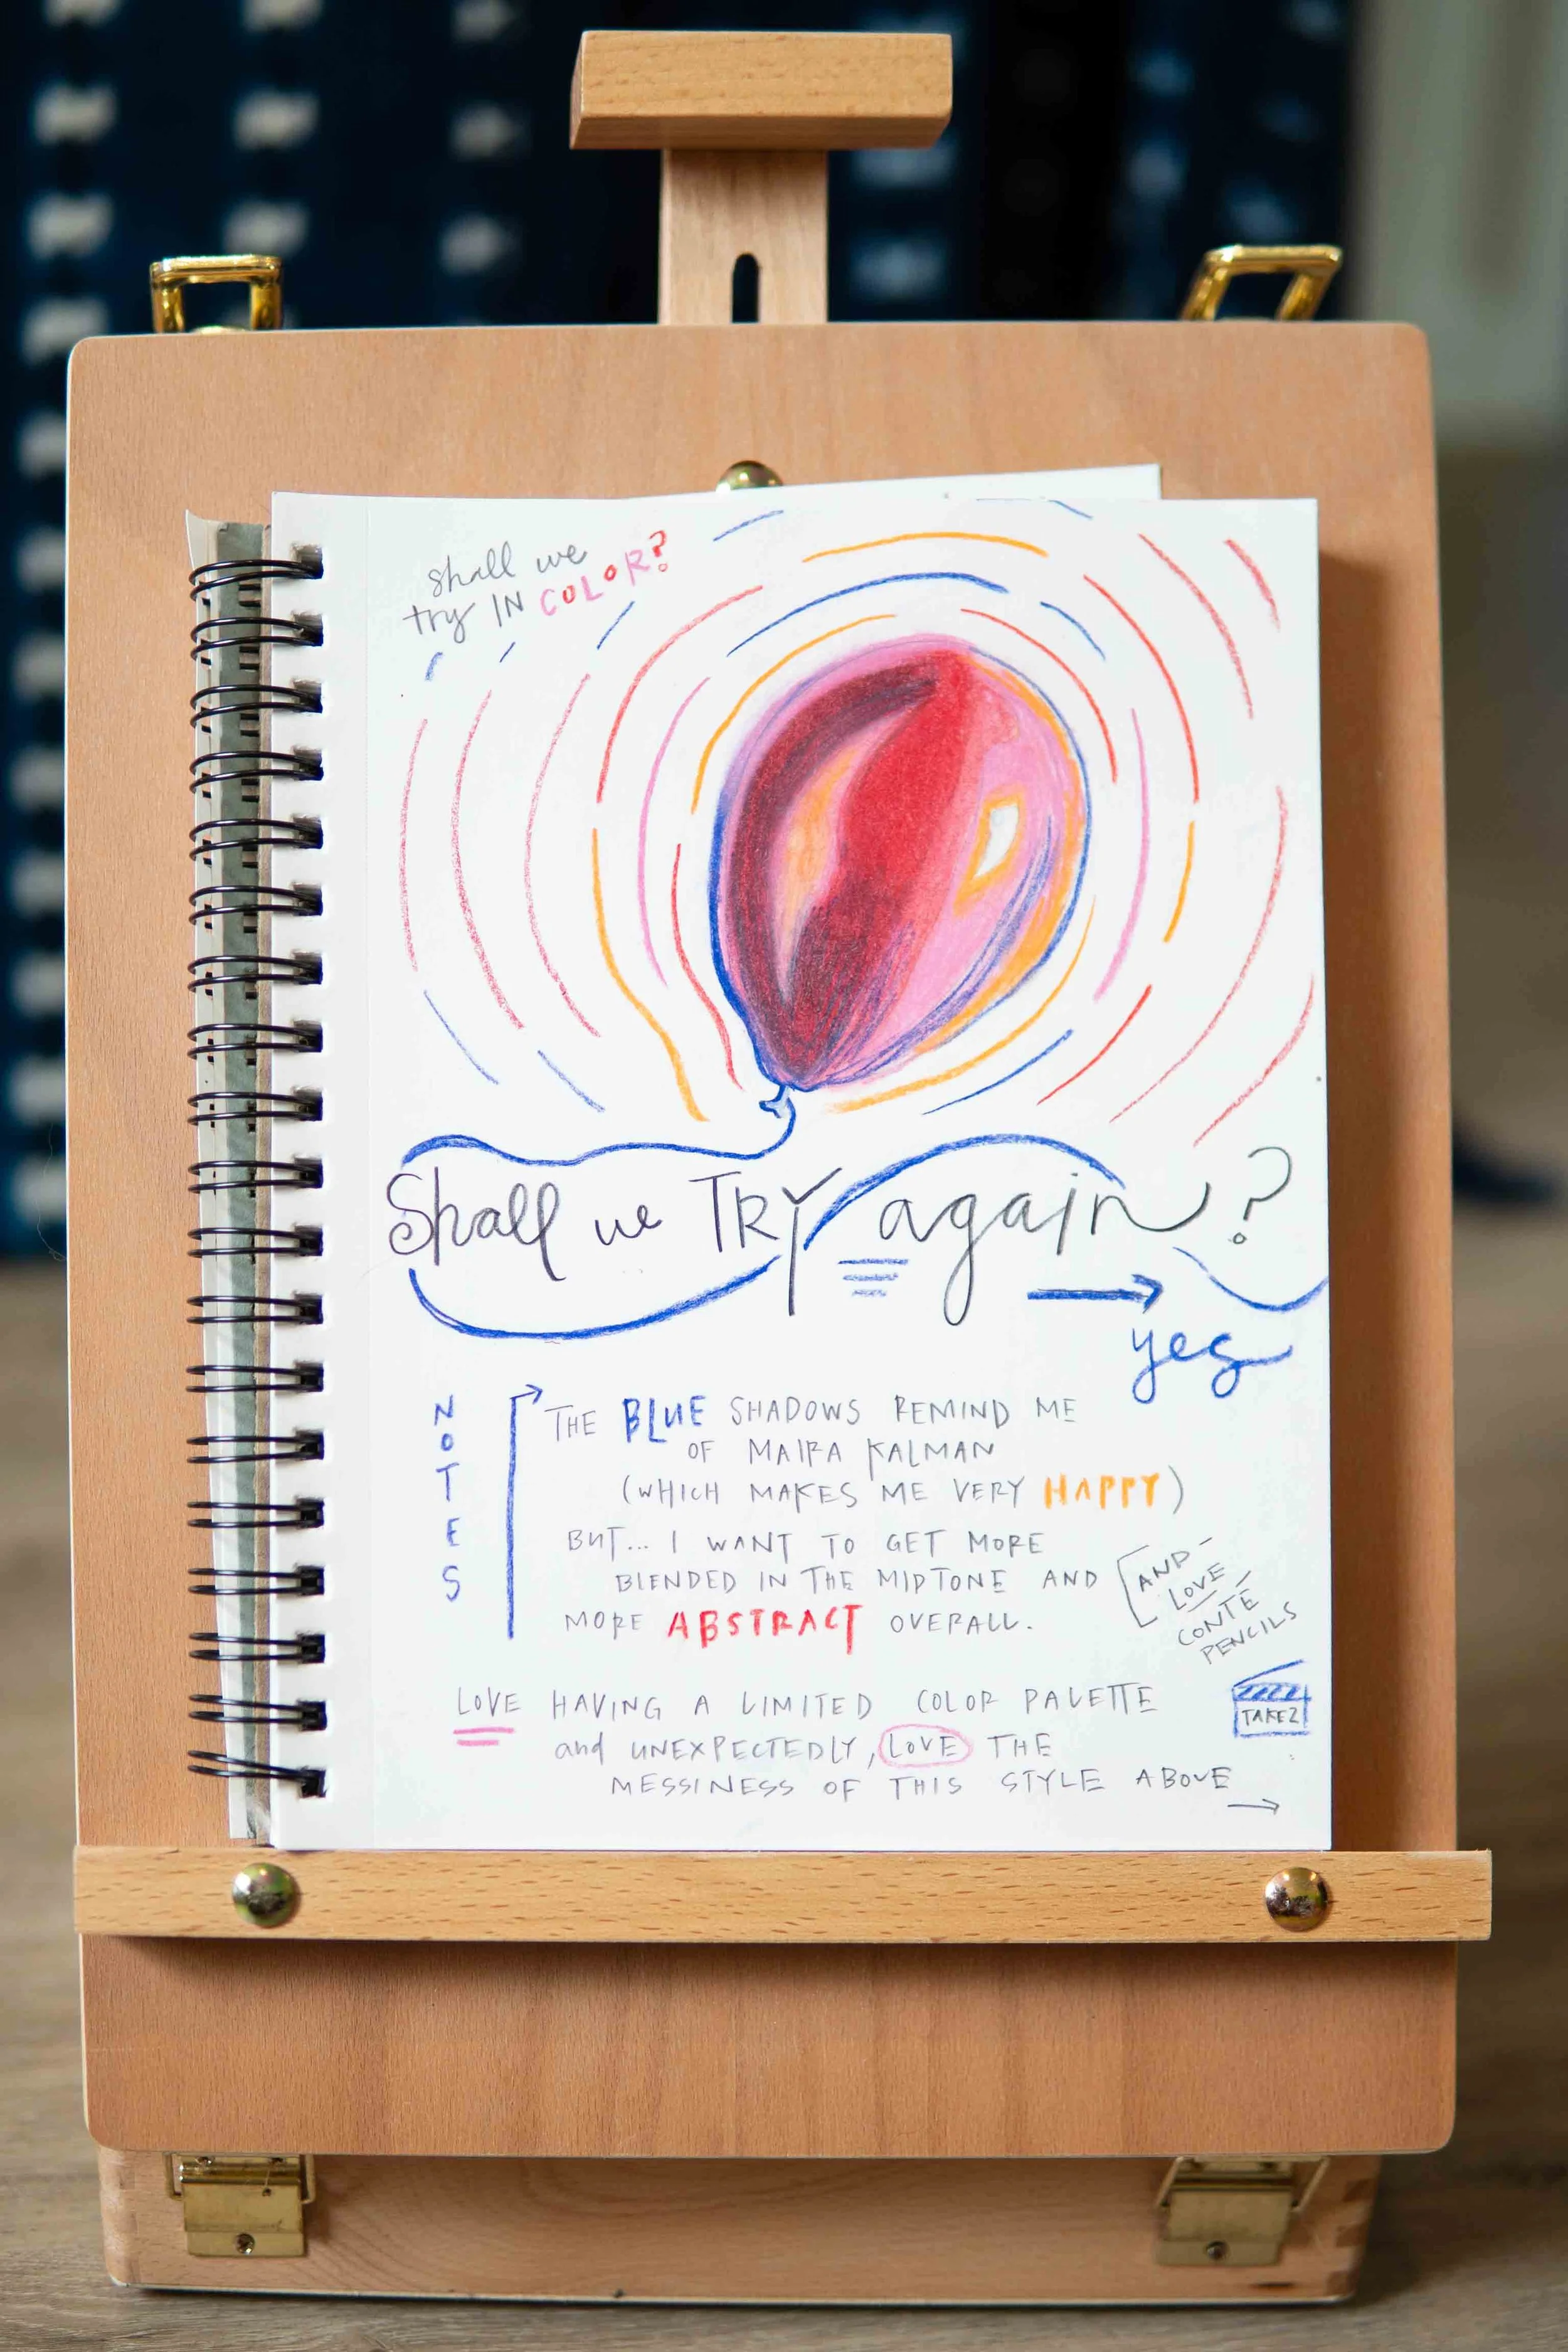 shall we
try IN COLOR?
Shall we TRY again?
yes
NOTES
THE BLUE SHADOWS REMIND ME
OF MAIRA KALMAN
(WHICH MAKES ME VERY HAPPY)
BUT... I WANT TO GET MORE
BLENDED IN THE MIDTONE AND
MORE ABSTRACT OVERALL.
AND
LOVE
CONTÉ
PENCILS
LOVE HAVING A LIMITED COLOR PALETTE
and UNEXPECTEDLY, LOVE THE
MESSINESS OF THIS STYLE ABOVE
TAKE 2